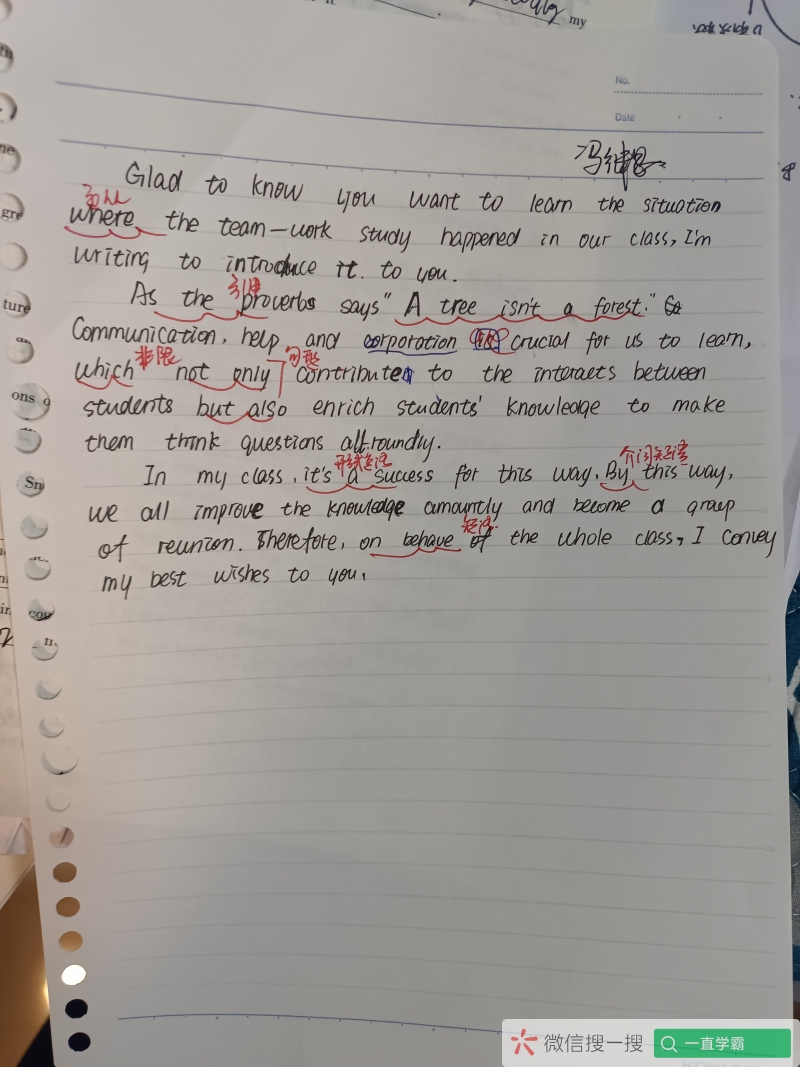 my
No.
Date
Glad to know you want to learn the situation
where the team-work study happened in our class, I'm
writing to introduce it. to you.
引语
As the proverbs says "A tree isn't a forest."
Communication, help and corporation crucial for us to learn,
非限 句型
which not only contribute to the interacts between
students but also enrich students' knowledge to make
them think questions allroundly.
形式主语 介词短语
In my class, it's a success for this way. By this way,
we all improve the knowledge amountly and become a group
短语
of reunion. Therefore, on behave of the whole class, I convey
my best wishes to you.
gre
ture
ons
Sn
微信搜一搜
一直学霸